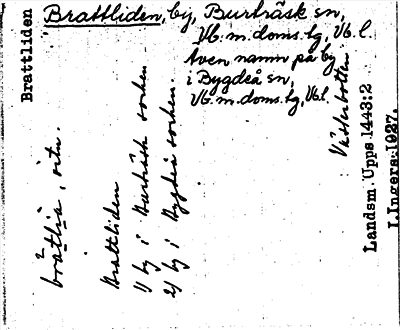 Brattliden
Brattliden, by, Burträsk sn,
Vb. m. doms. tg, Vb. l.
Även namn på by
i Bygdeå sn,
Vb. m. doms. tg, Vb. l.
brattlia, ortn.
Brattliden
1) by i Burträsk socken
2) by i Bygdeå socken.
Västerbotten
Landsm. Upps. 1443:2
I. Ingers. 1927.